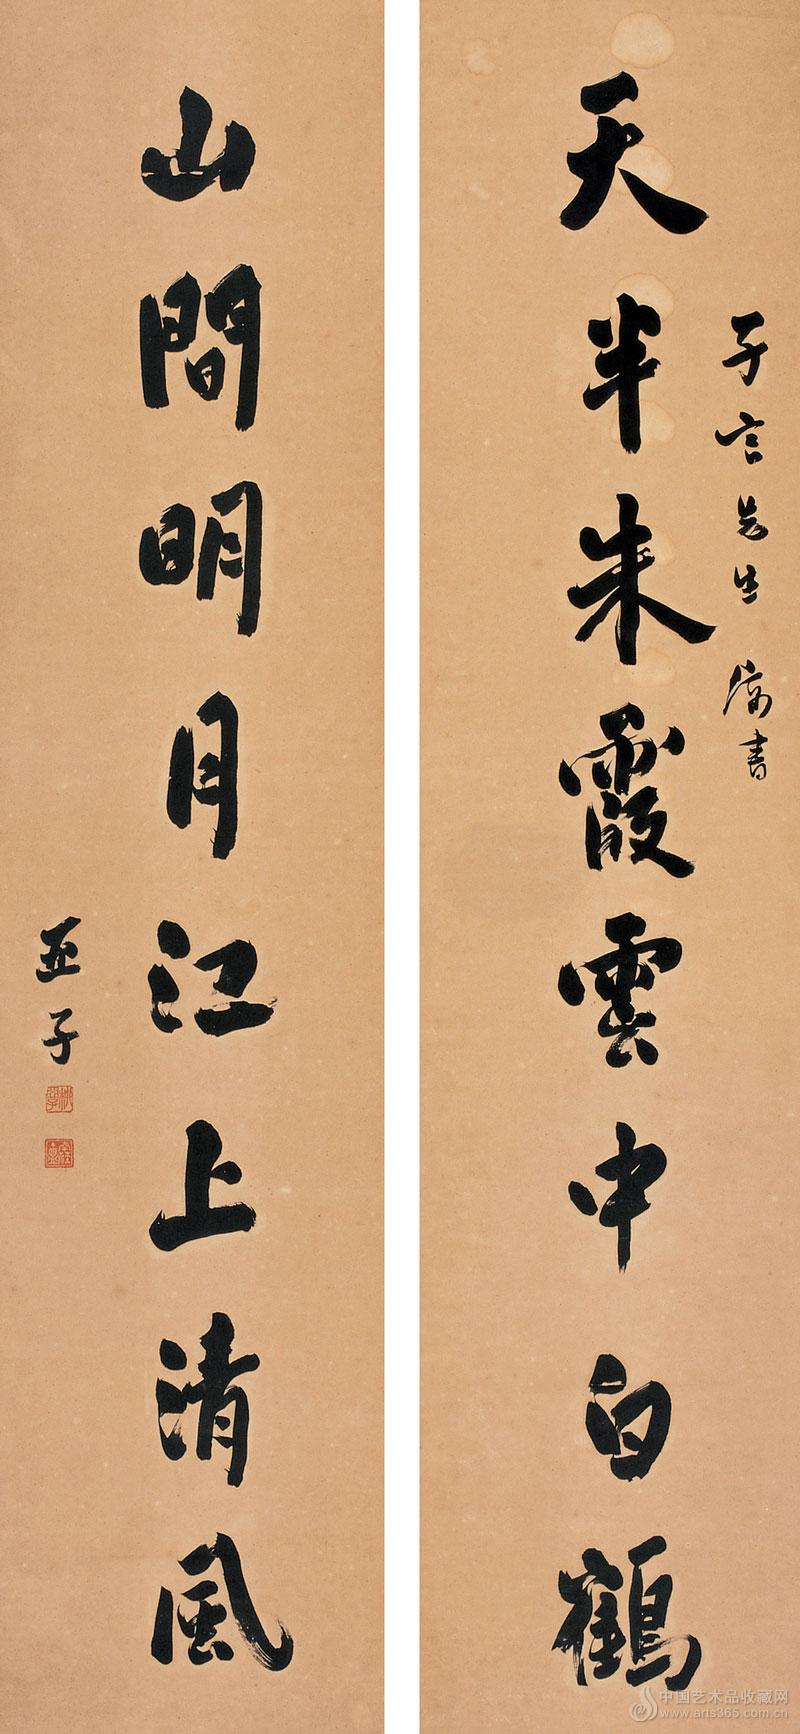 子言先生 属書
天半朱霞雲中白鶴
山間明月江上清風
亞子
中国艺术品收藏网
www.arts365.com.cn